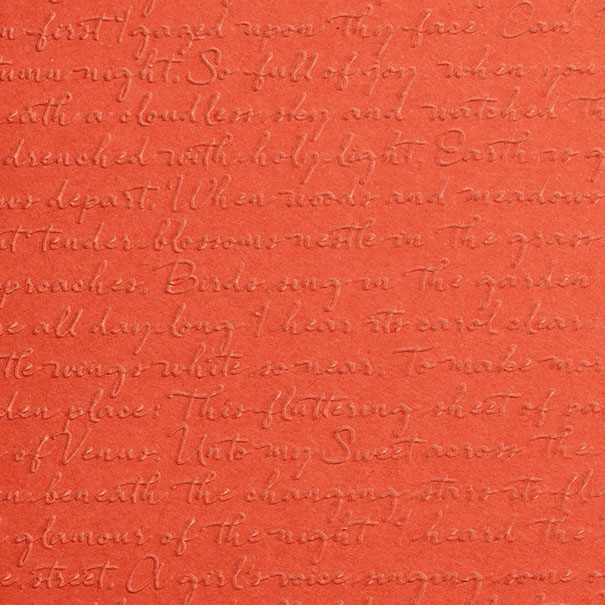 n first I gazed upon Thy face. Can
tumn night. So full of joy, when you
eath a cloudless sky and watched Th
drenched with holy light. Earth so g
ws depart. When woods and meadows
t tender blossoms nestle in the grass
proaches. Birds sing in the garden
re all day long I hear its carol clear
ttle wings white so near. To make mo
den place. This fluttering sheet of pa
of Venus. Unto my Sweet across the
en beneath the changing stars its fl
glamour of the night I heard the
e street. A girl's voice singing some o